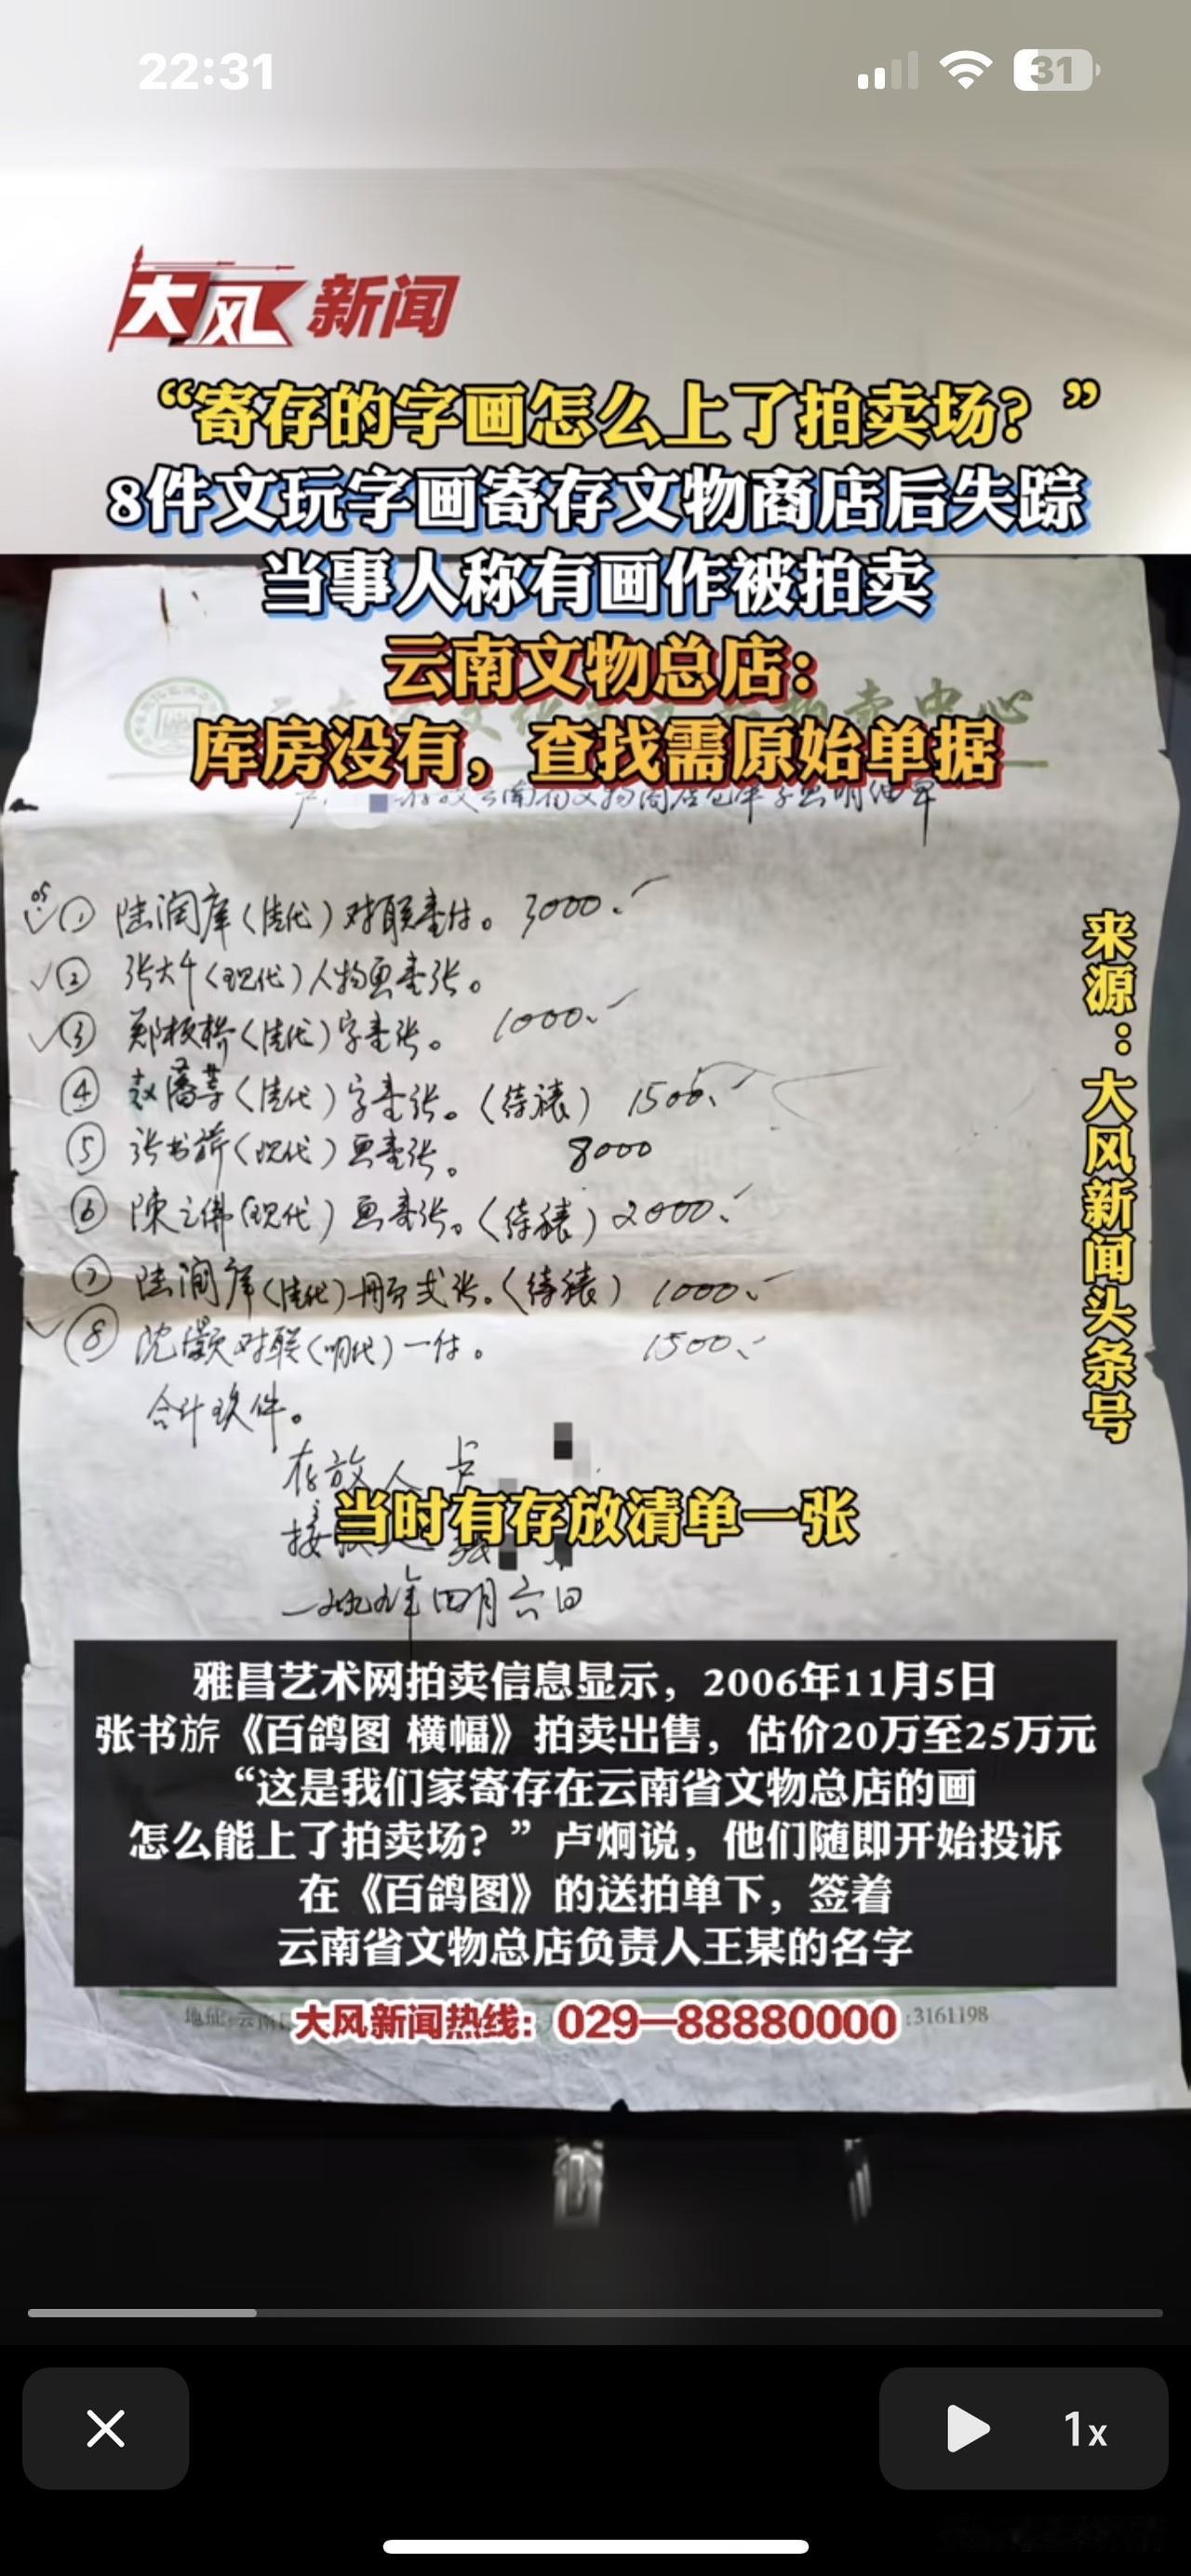 22:31
31
大风新闻
“寄存的字画怎么上了拍卖场？”
8件文玩字画寄存文物商店后失踪
当事人称有画作被拍卖
云南文物总店：
库房没有，查找需原始单据
中心
① 陆润庠（清代）对联壹付。3000.
② 张大千（现代）人物画壹张。
③ 郑板桥（清代）字壹张。1000.
④ 赵藩草（清代）字壹张。（待裱）1500.
⑤ 张书旂（现代）画壹张。8000
⑥ 陳之佛（现代）画壹张。（待裱）2000.
⑦ 陆润庠（清代）册页弍张。（待裱）1000.
⑧ 沈灏对联（明代）一付。1500.
合计玖件。
存放人 卢
当时有存放清单一张
年四月六日
来源：大风新闻头条号
雅昌艺术网拍卖信息显示，2006年11月5日
张书旂《百鸽图 横幅》拍卖出售，估价20万至25万元
“这是我们家寄存在云南省文物总店的画
怎么能上了拍卖场？”卢炯说，他们随即开始投诉
在《百鸽图》的送拍单下，签着
云南省文物总店负责人王某的名字
地址:云南
大风新闻热线：029—88880000
:3161198
1x